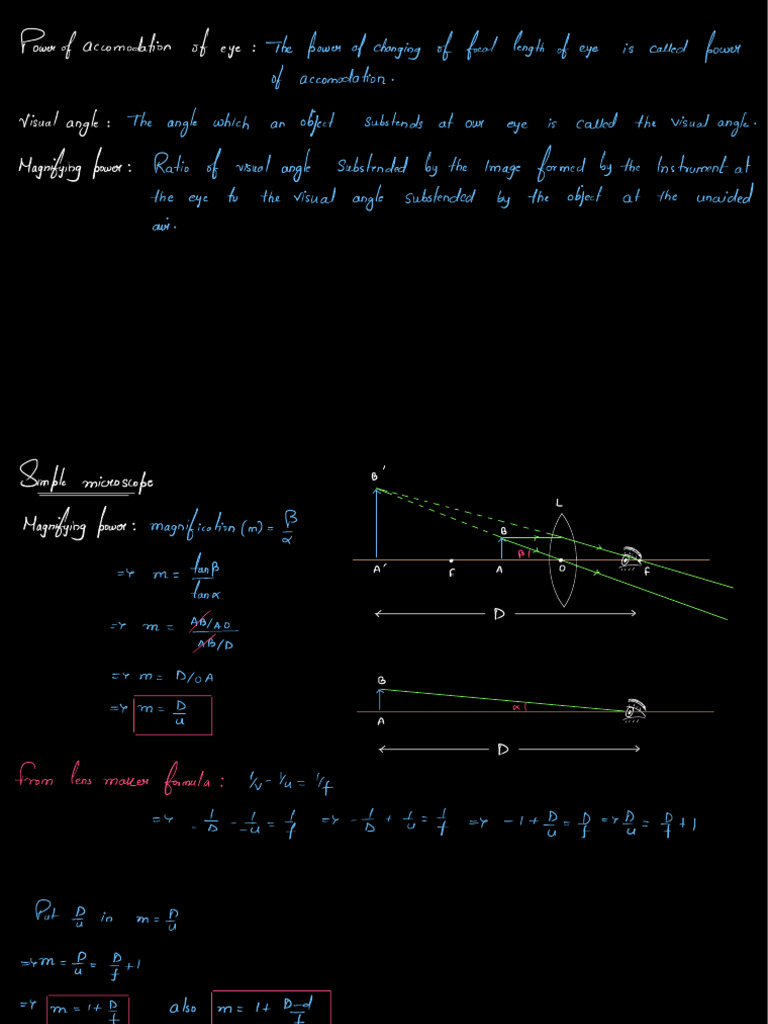 Power of accomodation of eye : The power of changing of focal length of eye is called power
of accomodation.
Visual angle : The angle which an object substends at our eye is called the visual angle.
Magnifying power : Ratio of visual angle Substended by the Image formed by the Instrument at
the eye to the visual angle substended by the object at the unaided
air.
Simple microscope
Magnifying power : magnification (m) = β/α
=> m = tanβ/tanα
=> m = AB/AO / AB/D
=> m = D/OA
=> m = D/u
B'
L
B
β
A' F A O F
D
B
α
A
D
From lens maker formula : 1/v - 1/u = 1/f
=> 1/-D - 1/-u = 1/f => -1/D + 1/u = 1/f => -1 + D/u = D/f => D/u = D/f + 1
Put D/u in m = D/u
=> m = D/u = D/f + 1
=> m = 1 + D/f also m = 1 + D-d/f